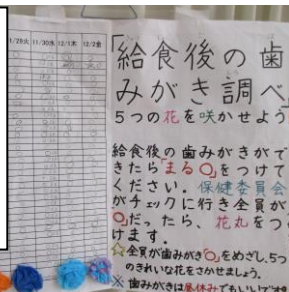 1/29火 11/30水 12/1木 12/2金
「給食後の歯
みがき調べ」
5つの花を咲かせよう
給食後の歯みがきがで
きたら「まる○」をつけて
ください。保健委員会
がチェックに行き全員が
○だったら、花丸をつ
けます。
☆全員が歯みがき○をめざし、5つ
のきれいな花をさかせましょう。
※歯みがきは昼休みでもいいです